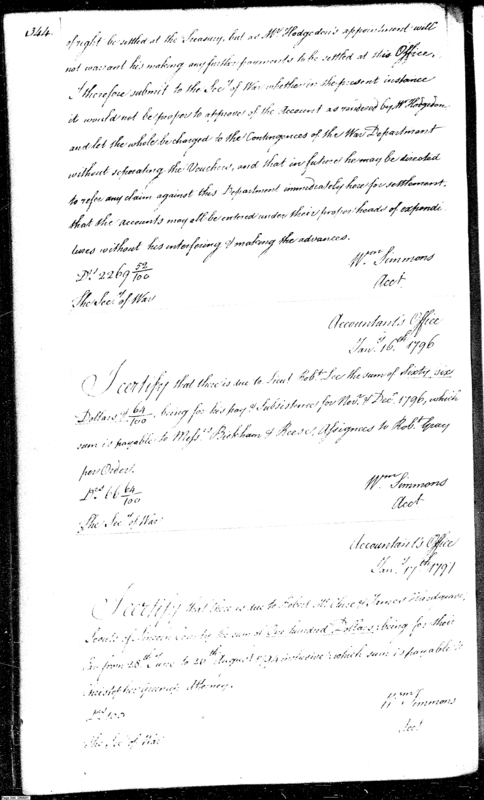 344.
of right be settled at the Treasury, but as Mr Hodgedon's appointment will
not warrant his making any further payments to be settled at this Office,
I therefore submit to the Secy of War whether in the present instance
it would not be proper to approve of the Account as rendered by Mr Hodgedon
and let the whole be charged to the Contingences of the War Department
without seperating the Vouchers, and that in future he may be directed
to refer any claim against this Department immediately here for settlement,
that the accounts may all be entred under their proper heads of expendi
tures without his interfering & making the advances.
Ds 2269 52/100
Wm Simmons
Acct
The Secy of War
Accountant's Office
Jany 16th 1796
I certify that there is due to Lieut Robt Lee the sum of Sixty six
Dollars & 64/100, being for his pay & Subsistence for Novr & Decr 1796, which
sum is payable to Messrs Bickham & Reese, Assignees to Robt Gray
per Order.
Ds 66 64/100
Wm Simmons
Acct
The Secy of War
Accountant's Office
Jany 17th 1797
I certify that there is due to Robert Mc Clure & James
Scouts of Lincoln County the sum of One hundred Dollars, being for their
from 28th June to 26th August 1794 inclusive which sum is payable to
Christopher Greenup Attorney.
Ds 100
Wm Simmons
Acct
The Secy of War